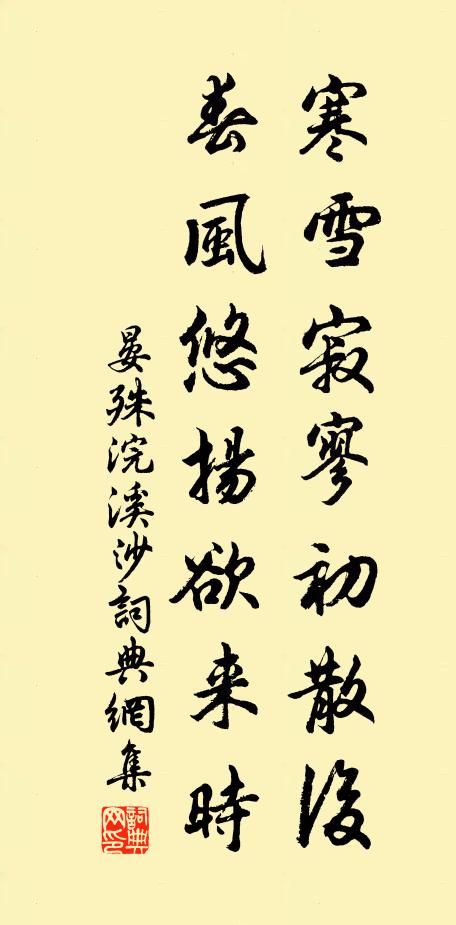 寒雪寂寥初散後
春風悠揚欲来時
晏殊浣溪沙詞典網集
詞典網印